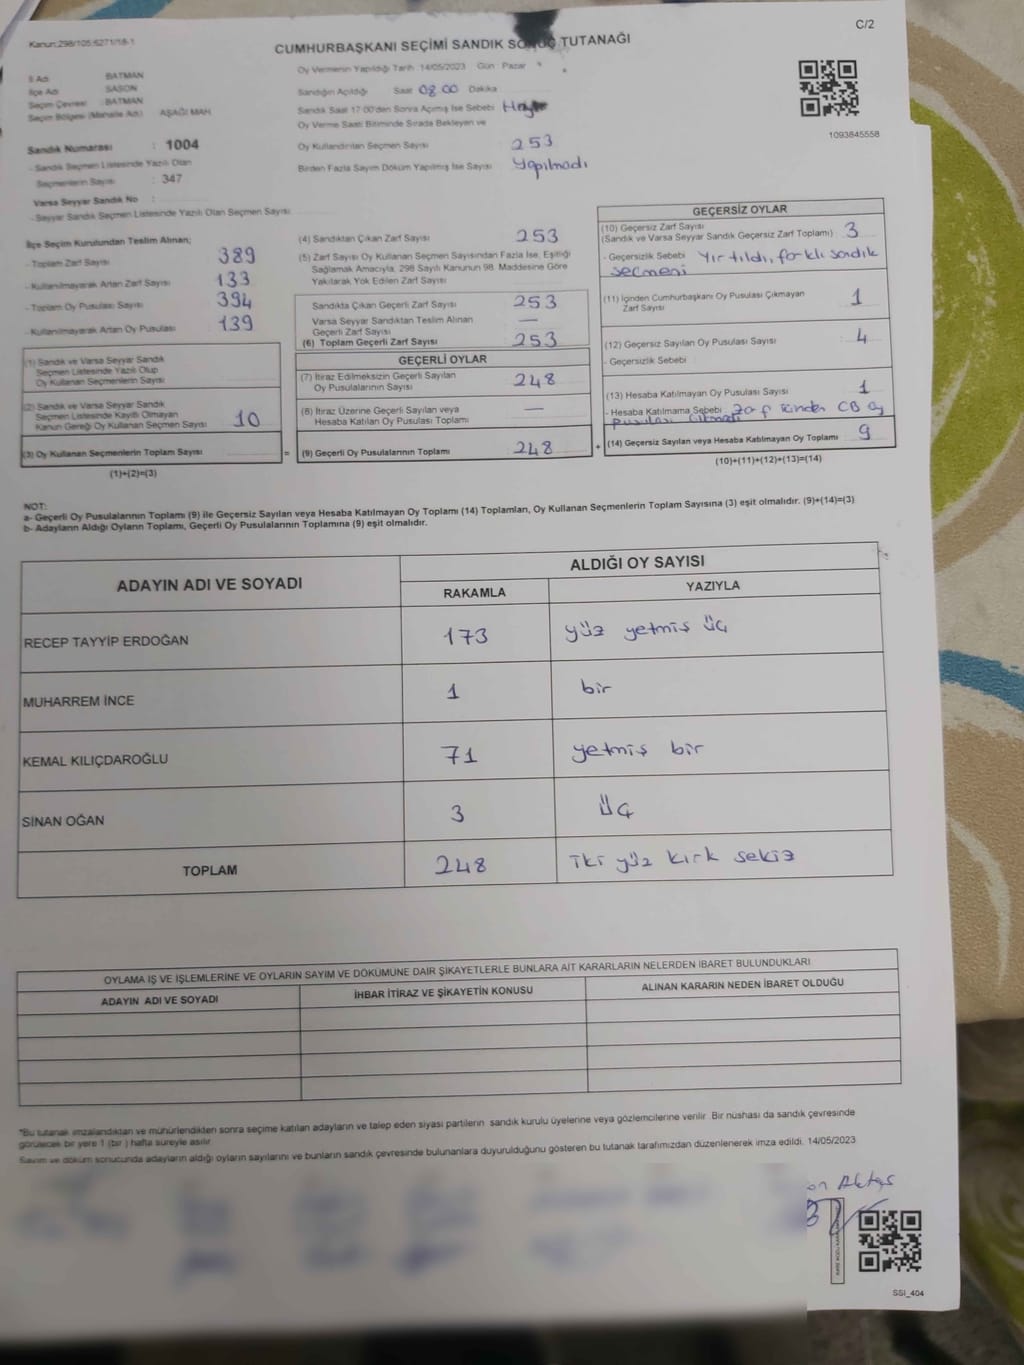 Kanun:298/105:6271/18-1
C/2
CUMHURBAŞKANI SEÇİMİ SANDIK SONUÇ TUTANAĞI
İl Adı BATMAN
İlçe Adı SASON
Seçim Çevresi : BATMAN
Seçim Bölgesi (Mahalle Adı) AŞAĞI MAH
Sandık Numarası : 1004
- Sandık Seçmen Listesinde Yazılı Olan
Seçmenlerin Sayısı : 347
Varsa Seyyar Sandık No :
- Seyyar Sandık Seçmen Listesinde Yazılı Olan Seçmen Sayısı
Oy Vermenin Yapıldığı Tarih :14/05/2023 Gün : Pazar
Sandığın Açıldığı Saat 08 00 Dakika
Sandık Saat 17:00'den Sonra Açılmış İse Sebebi Hayır
Oy Verme Saati Bitiminde Sırada Bekleyen ve
Oy Kullandırılan Seçmen Sayısı 253
Birden Fazla Sayım Döküm Yapılmış İse Sayısı Yapılmadı
1093845558
İlçe Seçim Kurulundan Teslim Alınan;
- Toplam Zarf Sayısı 389
- Kullanılmayarak Artan Zarf Sayısı 133
- Toplam Oy Pusulası Sayısı 394
- Kullanılmayarak Artan Oy Pusulası 139
(1) Sandık ve Varsa Seyyar Sandık
Seçmen Listesinde Yazılı Olup
Oy Kullanan Seçmenlerin Sayısı
(2) Sandık ve Varsa Seyyar Sandık
Seçmen Listesinde Kayıtlı Olmayan
Kanun Gereği Oy Kullanan Seçmen Sayısı 10
(3) Oy Kullanan Seçmenlerin Toplam Sayısı
(1)+(2)=(3)
=
(4) Sandıktan Çıkan Zarf Sayısı 253
(5) Zarf Sayısı Oy Kullanan Seçmen Sayısından Fazla İse, Eşitliği
Sağlamak Amacıyla, 298 Sayılı Kanunun 98. Maddesine Göre
Yakılarak Yok Edilen Zarf Sayısı
Sandıkta Çıkan Geçerli Zarf Sayısı 253
Varsa Seyyar Sandıktan Teslim Alınan
Geçerli Zarf Sayısı —
(6) Toplam Geçerli Zarf Sayısı 253
GEÇERLİ OYLAR
(7) İtiraz Edilmeksizin Geçerli Sayılan
Oy Pusulalarının Sayısı 248
(8) İtiraz Üzerine Geçerli Sayılan veya
Hesaba Katılan Oy Pusulası Toplamı —
(9) Geçerli Oy Pusulalarının Toplamı 248
+
GEÇERSİZ OYLAR
(10) Geçersiz Zarf Sayısı
(Sandık ve Varsa Seyyar Sandık Geçersiz Zarf Toplamı) 3
- Geçersizlik Sebebi Yırtıldı, farklı sandık
seçmeni
(11) İçinden Cumhurbaşkanı Oy Pusulası Çıkmayan
Zarf Sayısı 1
(12) Geçersiz Sayılan Oy Pusulası Sayısı 4
- Geçersizlik Sebebi
(13) Hesaba Katılmayan Oy Pusulası Sayısı 1
- Hesaba Katılmama Sebebi Zarf içinden CB oy
pusulası çıkmadı
(14) Geçersiz Sayılan veya Hesaba Katılmayan Oy Toplamı 9
(10)+(11)+(12)+(13)=(14)
NOT:
a- Geçerli Oy Pusulalarının Toplamı (9) ile Geçersiz Sayılan veya Hesaba Katılmayan Oy Toplamı (14) Toplamları, Oy Kullanan Seçmenlerin Toplam Sayısına (3) eşit olmalıdır. (9)+(14)=(3)
b- Adayların Aldığı Oyların Toplamı, Geçerli Oy Pusulalarının Toplamına (9) eşit olmalıdır.
ADAYIN ADI VE SOYADI
ALDIĞI OY SAYISI
RAKAMLA YAZIYLA
RECEP TAYYİP ERDOĞAN 173 yüz yetmiş üç
MUHARREM İNCE 1 bir
KEMAL KILIÇDAROĞLU 71 yetmiş bir
SİNAN OĞAN 3 üç
TOPLAM 248 iki yüz kırk sekiz
OYLAMA İŞ VE İŞLEMLERİNE VE OYLARIN SAYIM VE DÖKÜMÜNE DAİR ŞİKAYETLERLE BUNLARA AİT KARARLARIN NELERDEN İBARET BULUNDUKLARI
ADAYIN ADI VE SOYADI İHBAR İTİRAZ VE ŞİKAYETİN KONUSU ALINAN KARARIN NEDEN İBARET OLDUĞU
*Bu tutanak imzalandıktan ve mühürlendikten sonra seçime katılan adayların ve talep eden siyasi partilerin sandık kurulu üyelerine veya gözlemcilerine verilir. Bir nüshası da sandık çevresinde
görülecek bir yere 1 (bir ) hafta süreyle asılır.
Sayım ve döküm sonucunda adayların aldığı oyların sayılarını ve bunların sandık çevresinde bulunanlara duyurulduğunu gösteren bu tutanak tarafımızdan düzenlenerek imza edildi. 14/05/2023
Aktaş
SSI_404